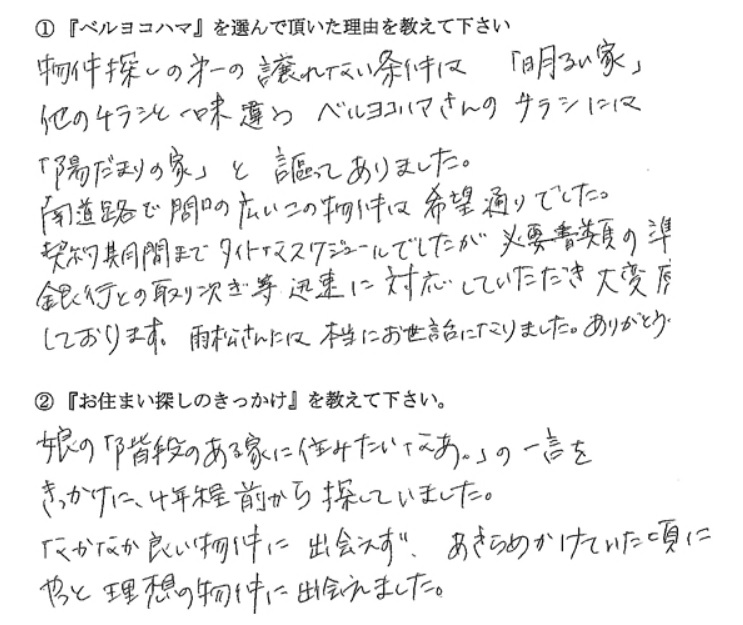 ① 『ベルヨコハマ』を選んで頂いた理由を教えて下さい
物件探しの第一の譲れない条件は 「明るい家」
他のチラシと一味違う ベルヨコハマさんの チラシには
「陽だまりの家」と 謳ってありました。
南道路で間口の広いこの物件は希望通りでした。
契約期間までタイトなスケジュールでしたが 必要書類の準
銀行との取り次ぎ等 迅速に対応していただき 大変
しております。雨松さんには 本当にお世話になりました。ありがとう
② 『お住まい探しのきっかけ』を教えて下さい。
娘の「階段のある家に住みたいなあ。」の一言を
きっかけに、4年程前から探していました。
なかなか良い物件に 出会えず、あきらめかけていた頃に
やっと理想の物件に出会えました。